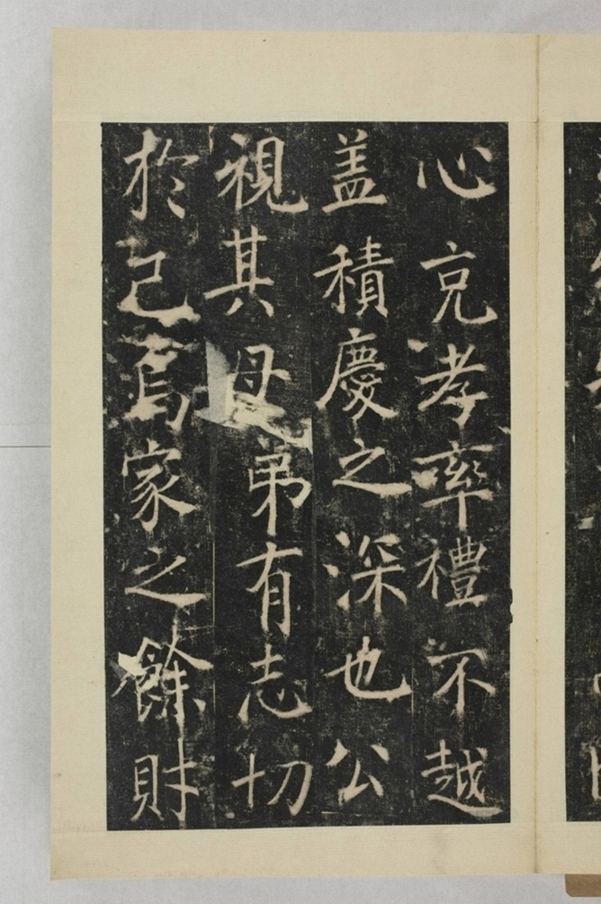 心克孝率禮不越
盖積慶之深也公
視其母弟有志切
於己為家之餘財